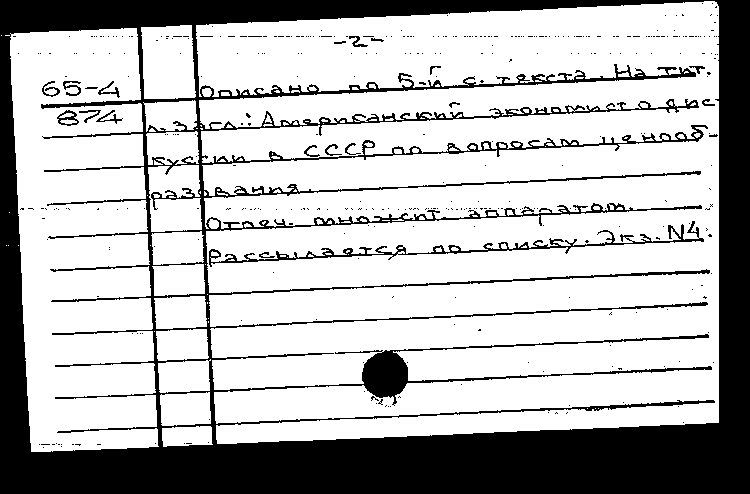 -2-
65-4 Описано по 5-й с. текста. На тит.
874 л. загл.: Американский экономист о дис-
куссии в СССР по вопросам ценооб-
разования.
Отпеч. множит. аппаратом.
Рассылается по списку. Экз. N4.